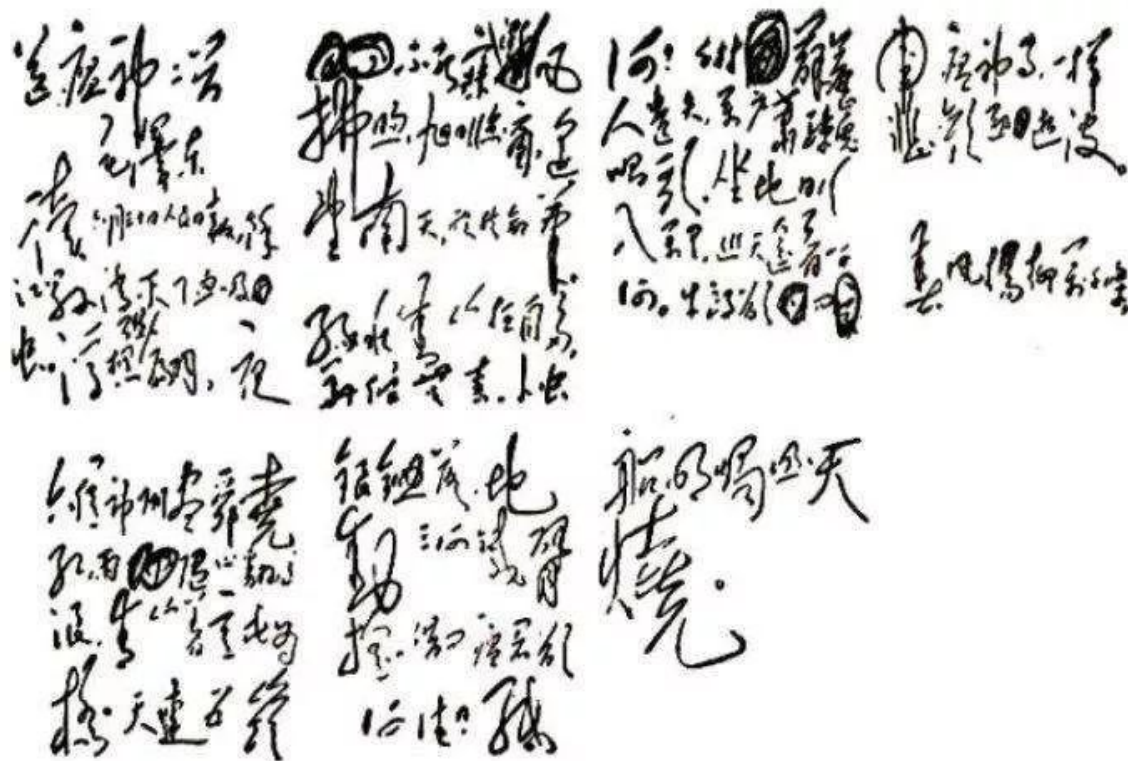 送瘟神二首
毛泽东
读六月三十日人民日报,余
江县消灭了血吸
虫。浮想联翩,一夜
不能寐。微风
拂晓,旭日临窗,遥
望南天,欣然命笔。
绿水青山枉自多,
华佗无奈小虫
何!千村薜荔
人遗矢,万户萧疏鬼
唱歌。坐地日行
八万里,巡天遥看一千
河。牛郎欲问
瘟神事,一样
悲欢逐逝波。
春风杨柳万千条
六亿神州尽舜尧
红雨随心翻作
浪,青山着意化为
桥。天连五岭
银锄落,地
動三河铁臂
摇。借问瘟君欲
何往?纸
船明烛照天
燒。